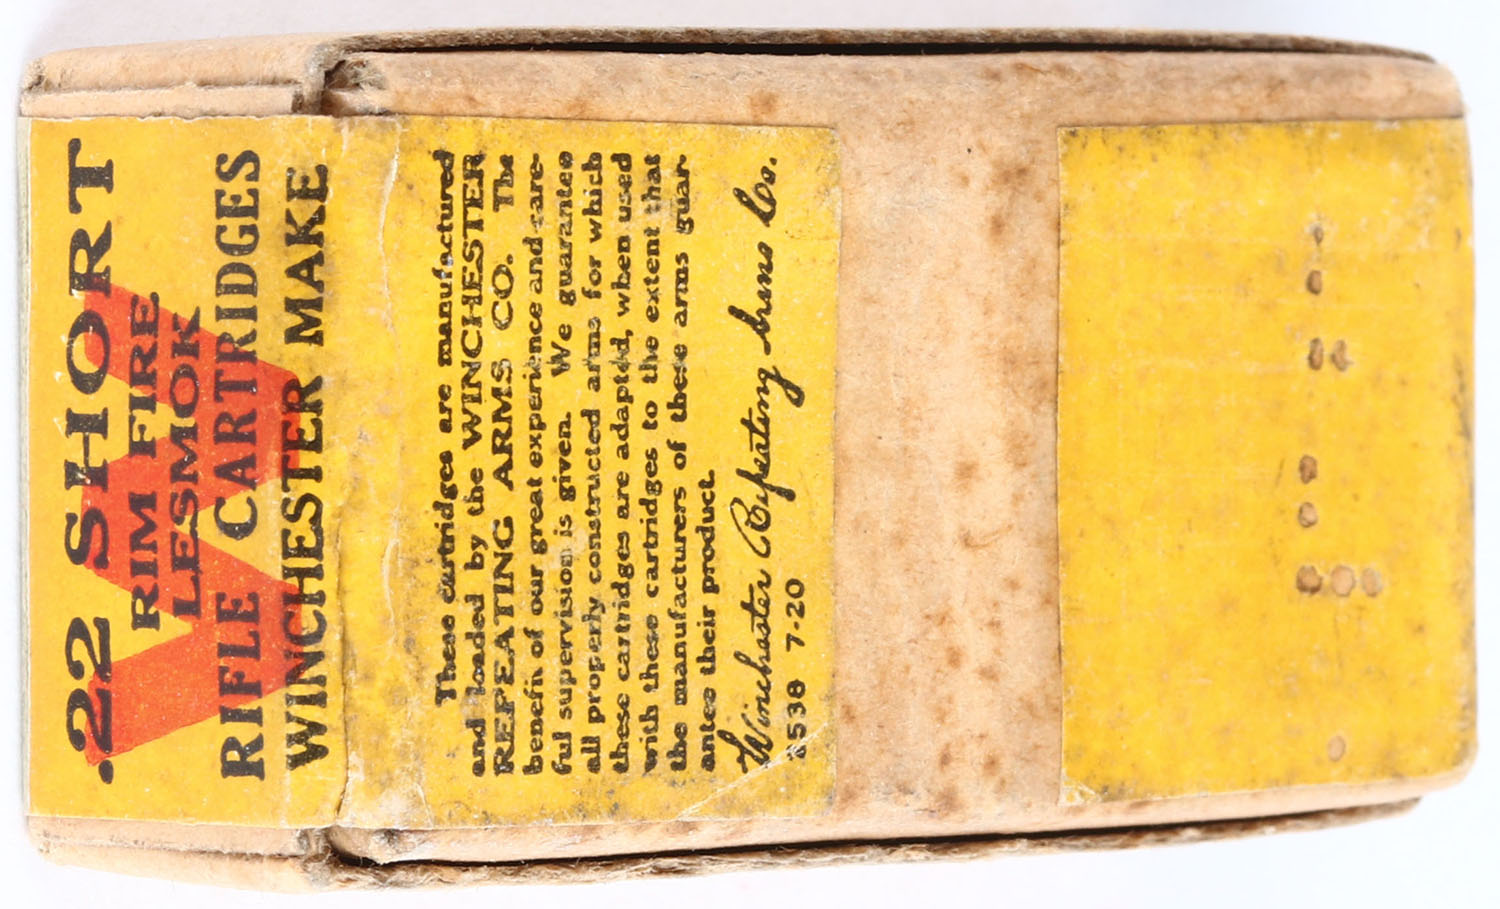 .22 SHORT
RIM FIRE
LESMOK
RIFLE CARTRIDGES
WINCHESTER MAKE
W
These cartridges are manufactured
and loaded by the WINCHESTER
REPEATING ARMS CO. The
benefit of our great experience and care-
ful supervision is given. We guarantee
all properly constructed arms for which
these cartridges are adapted, when used
with these cartridges to the extent that
the manufacturers of these arms guar-
antee their product.
Winchester Repeating Arms Co.
538 7-20